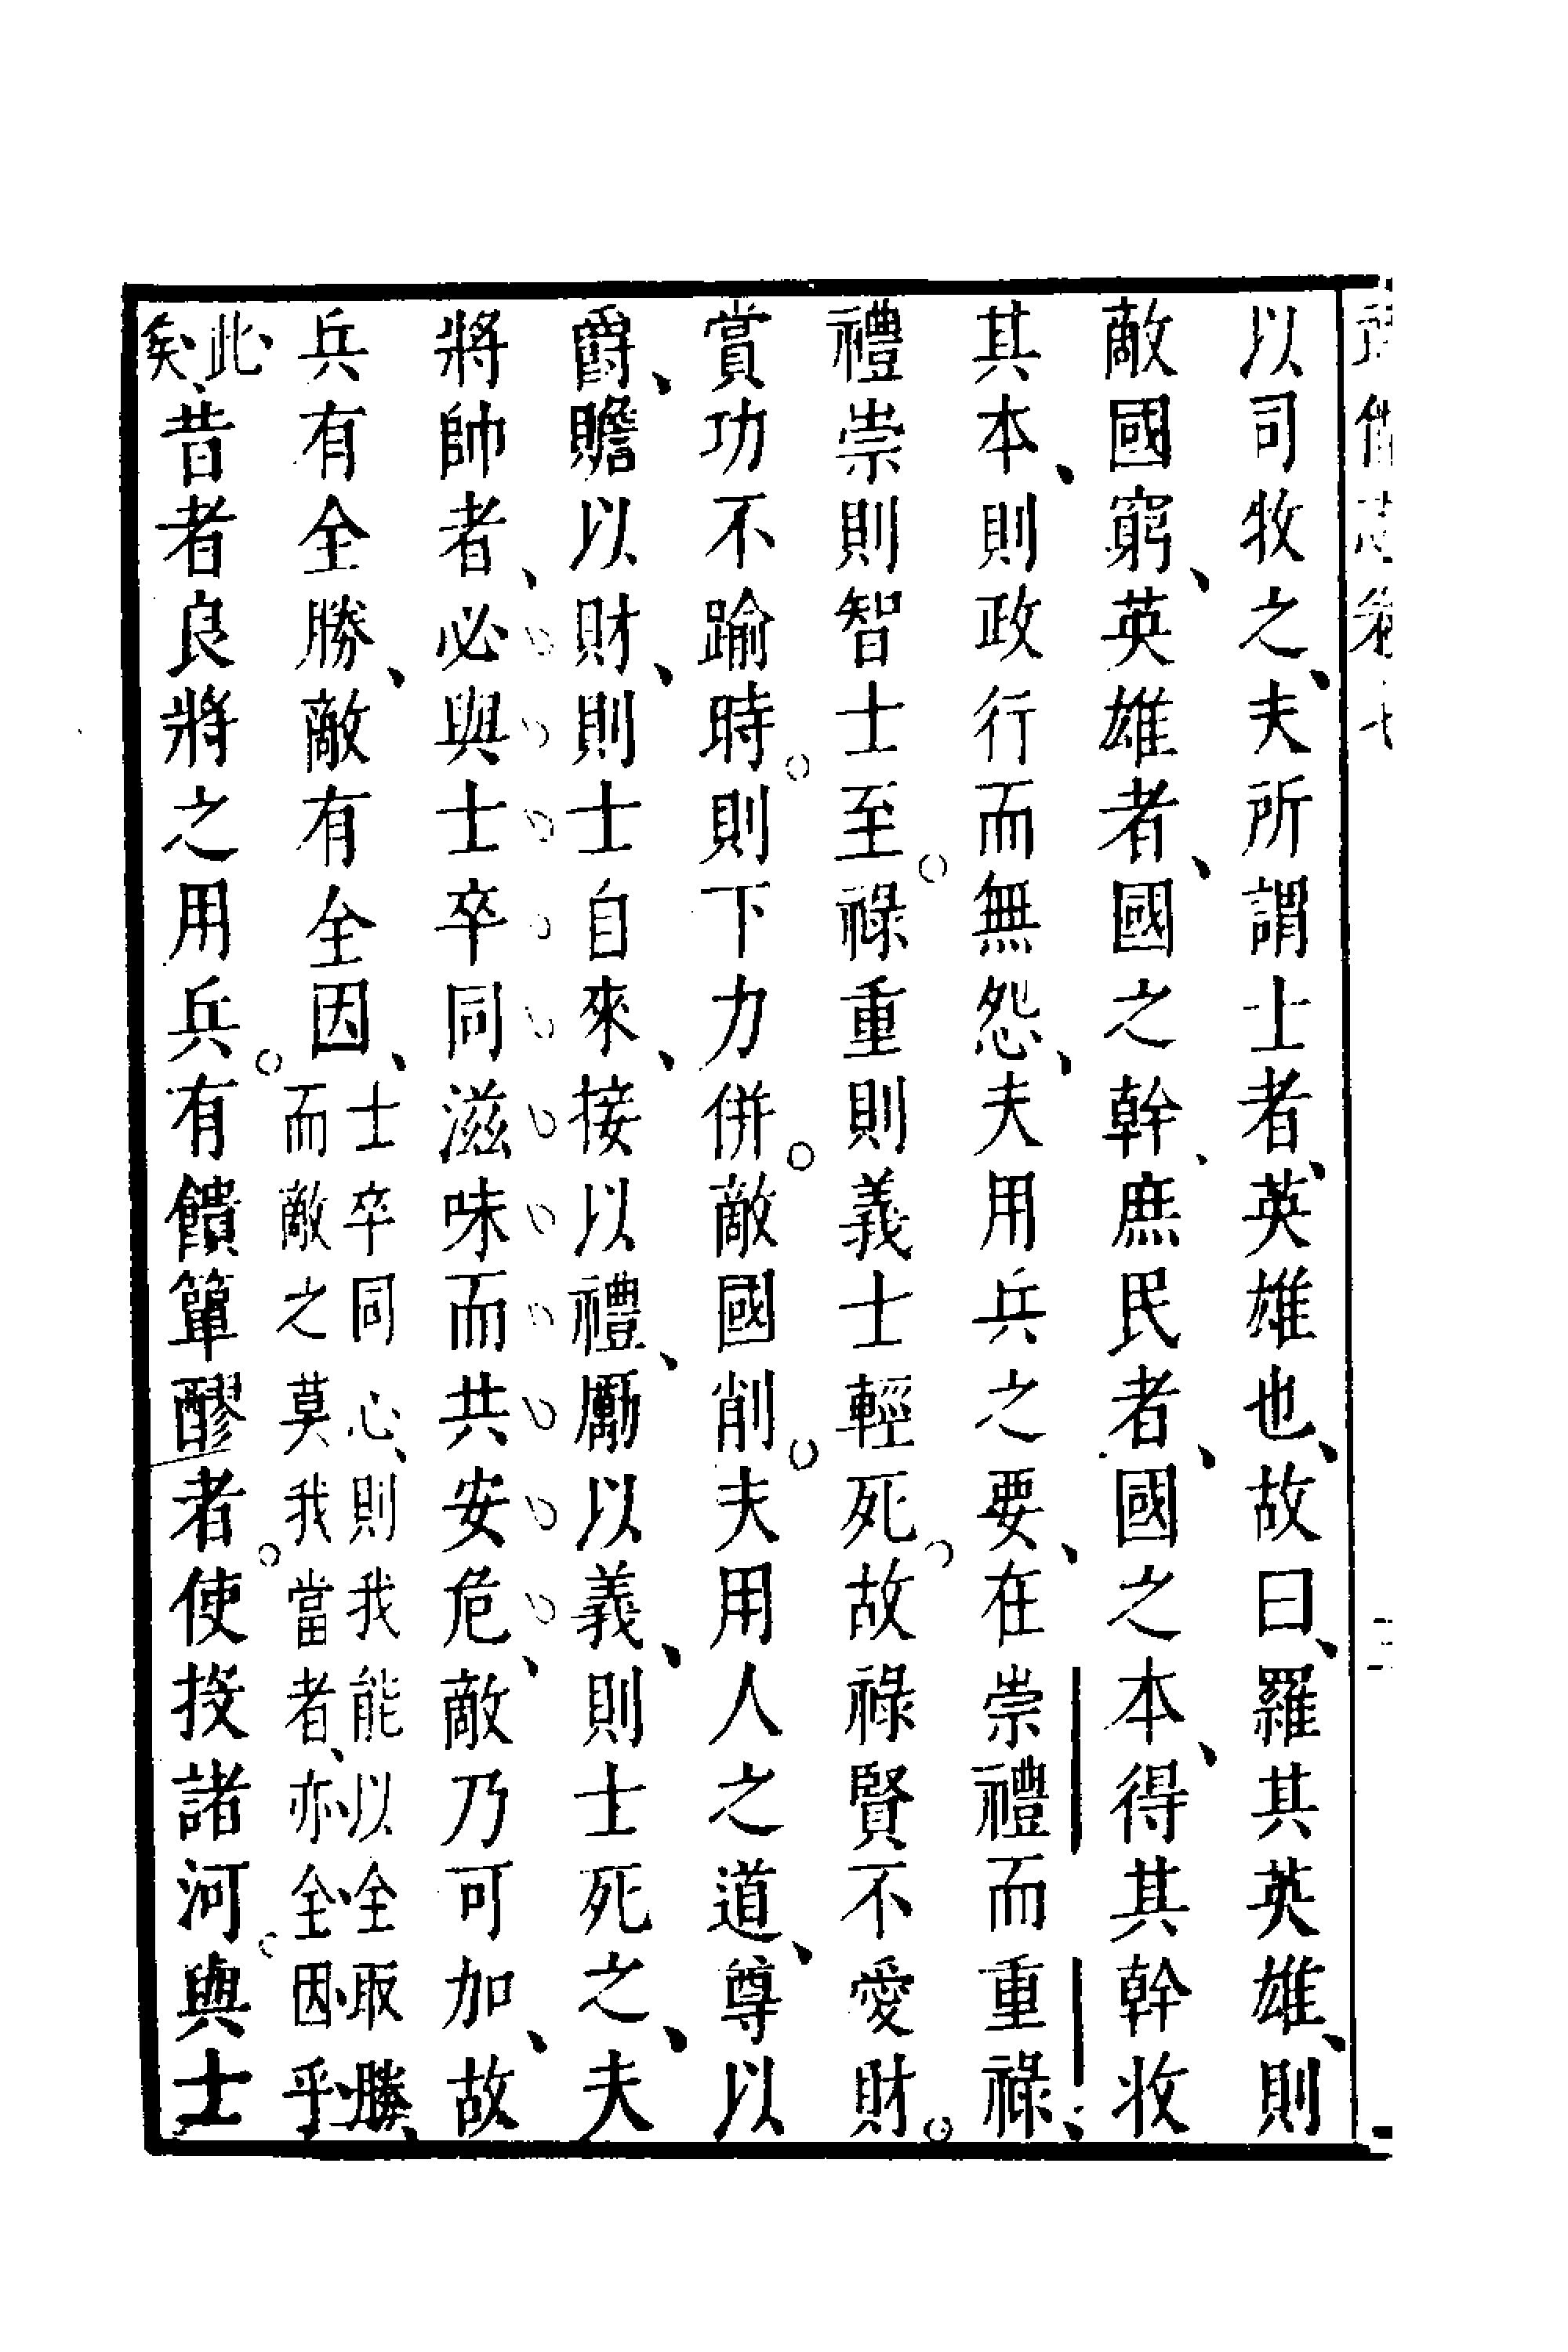 以司牧之、夫所謂士者、英雄也、故曰、羅其英雄、則
敵國窮、英雄者、國之幹、庶民者、國之本、得其幹收
其本、則政行而無怨、夫用兵之要、在崇禮而重祿、
禮崇則智士至。祿重則義士輕死。故祿賢不愛財。
賞功不踰時。則下力併。敵國削。夫用人之道、尊以
爵、贍以財、則士自來、接以禮、勵以義、則士死之、夫
將帥者、必與士卒同滋味而共安危、敵乃可加、故
兵有全勝、敵有全因、士卒同心、則我能以全取勝、而敵之莫我當者、亦全因乎
此矣、昔者良將之用兵。有饋簞醪者。使投諸河。與士